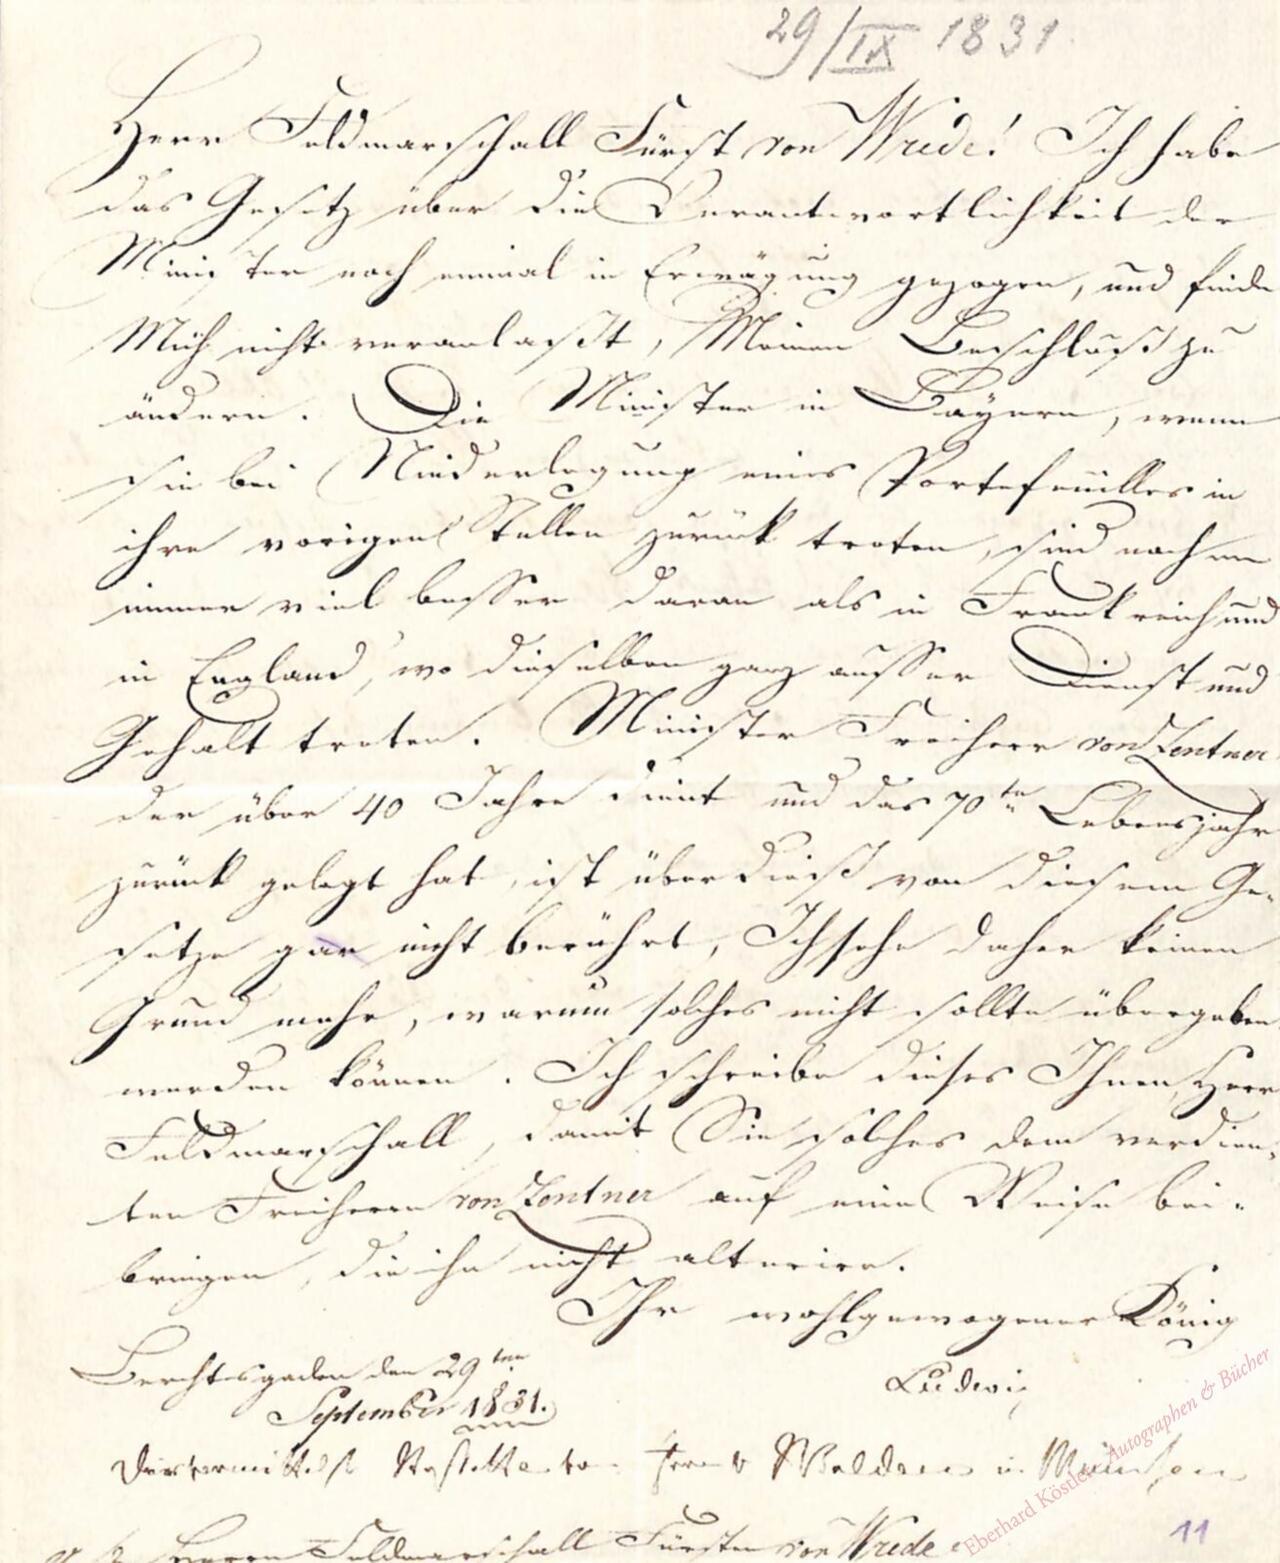 29/IX 1831.
Herr Feldmarschall Fürst von Wrede! Ich habe
das Gesetz über die Verantwortlichkeit der
Minister noch einmal in Erwägung gezogen, und finde
Mich nicht veranlaßt, Meinen Beschluß zu
ändern. Die Minister in Bayern, wenn
sie bei Niederlegung eines Portefeuilles in
ihre vorigen Stellen zurück treten, sind noch
immer viel besser daran als in Frankreich und
in England, wo dieselben ganz ausser Dienst und
Gehalt treten. Minister Freiherr von Zentner
der über 40 Jahre dient und das 70te Lebensjahr
zurück gelegt hat, ist über dieß von diesem Ge-
setze gar nicht berührt, Ich sehe daher keinen
Grund mehr, warum solches nicht sollte übergeben
werden können. Ich schreibe dieses Ihnen, Herr
Feldmarschall, damit Sie solches dem verdien-
ten Freiherrn von Zentner auf eine Weise bei-
bringen, die ihn nicht alterire.
Ihr wohlgewogener König
Ludwig
Berchtesgaden den 29ten
September 1831.
in München
Herrn Feldmarschall Fürsten von Wrede
11
Eberhard Köstler Autographen & Bücher